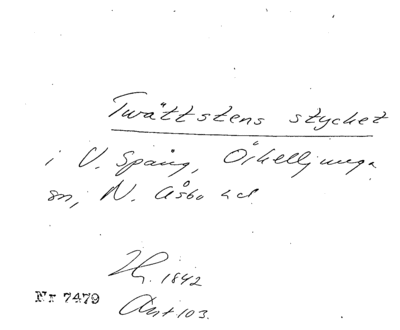 Twättstens stycket
i V. Spång, Örkelljunga
sn, N. Åsbo hd
H. 1842
Akt 103.
Nr 7479